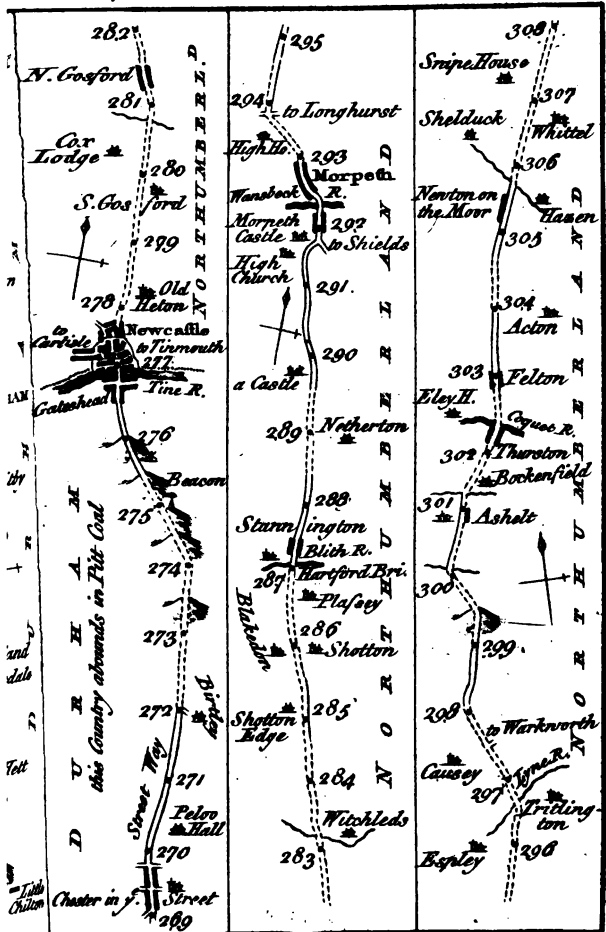 282
N. Gosford
281
Cox
Lodge
280
S. Gosford
279
278
Old
Heton
NORTHUMBERL.D
Newcastle
to
Carlisle
to Tinmouth
277
Tine R.
Gateshead
276
Beacon
275
274
273
272
Birtley
271
Street Way
Peloo
Hall
270
Chester in y.e Street
269
DURHAM
this Country abounds in Pitt Coal
Little
Chilton
295
294
to Longhurst
High Ho.
293
Morpeth
Wansbeck R.
292
Morpeth
Castle
to Shields
High
Church
291
290
a Castle
289
Netherton
288
Stannington
Blith R.
287
Hartford Bri.
Plassey
Blakedon
286
Shotton
Shotton
Edge
285
284
Witchleds
283
NORTHUMBERLAND
308
Snipe House
307
Shelduck
Whittel
306
Newton on
the Moor
Hazen
305
304
Acton
303
Felton
Eley H.
Coquet R.
302
Thurston
Bockenfield
301
Ashelt
300
299
298
to Warkworth
Causey
297
Lyne R.
Tritling-
ton
296
Espley
NORTHUMBERLAND